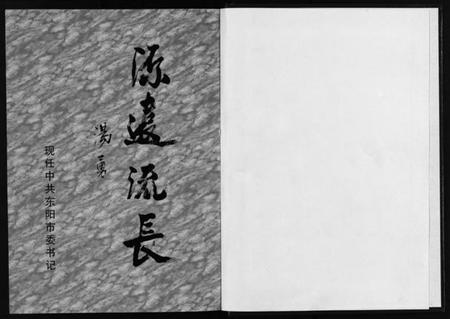 源远流长
汤勇
现任中共东阳市委书记